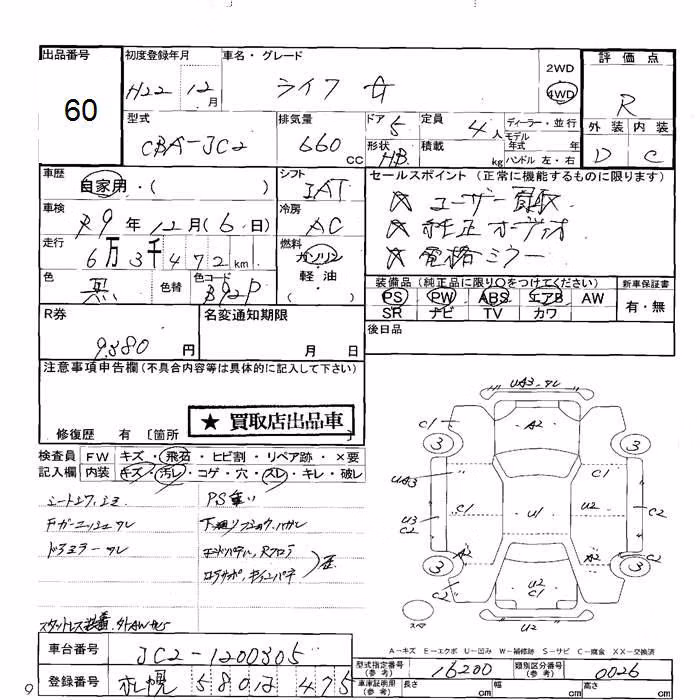 出品番号
60
初度登録年月
H22 12月
車名・グレード
ライフ G
2WD
4WD
評価点
R
外装 内装
D C
型式
CBA-JC2
排気量
660 CC
ドア 5
定員 4人
ディーラー・並行
形状 HB
積載 kg
モデル年式 年
ハンドル 左・右
車歴
自家用・( )
シフト
IAT
セールスポイント (正常に機能するものに限ります)
☆ ユーザー買取
☆ 純正オーディオ
☆ 電格ミラー
車検
R9年12月(6日)
冷房
AC
走行
6万3千472km
燃料
ガソリン
軽・油
( )
色
黒
色替
色コード
B92P
装備品(純正品に限り○をつけてください)
PS PW ABS エアB AW
SR ナビ TV カワ
新車保証書
有・無
R券
9,380 円
名変通知期限
月 日
後日品
注意事項申告欄(不具合内容等は具体的に記入して下さい)
★ 買取店出品車
修復歴 有 〔箇所
検査員記入欄
FW キズ・飛石・ヒビ割・リペア跡・×要
内装 キズ・汚レ・コゲ・穴・スレ・キレ・破レ
PS重い
ドアミラーワレ
UA3.ワレ
A2
C1
3
3
UA3
C1
C1
U3
C2
U1
U2
C2
A2
A2
3
3
C2
U2
C1
C2
U2
スペア
A-キズ E-エクボ U-凹み W-補修跡 S-サビ C-腐食 XX-交換済
車台番号
JC2-1200305
登録番号
札幌 580 475
型式指定番号(参考)
16200
類別区分番号(参考)
0026
車庫証明用(参考)
長さ cm
幅 cm
高さ cm
9